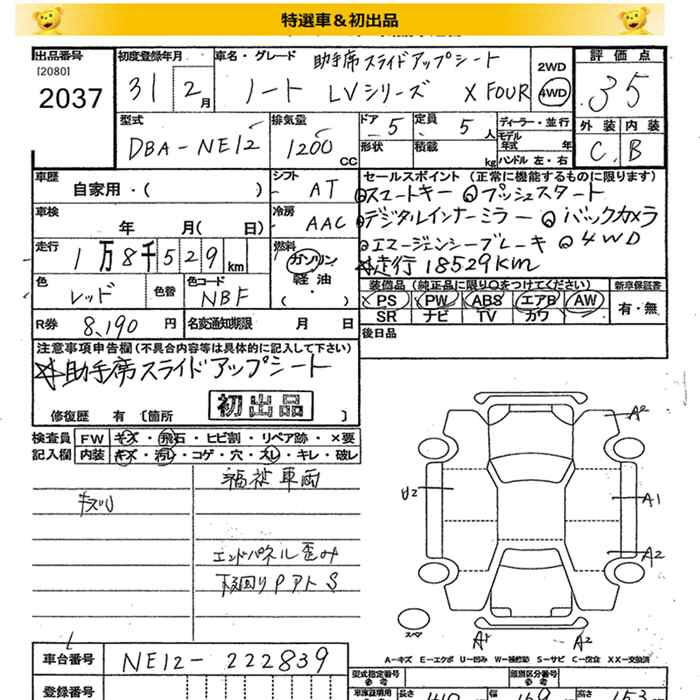 特選車＆初出品
出品番号 初度登録年月 車名・グレード 助手席スライドアップシート 2WD 評価点
[2080]
2037 31 2月 ノート LVシリーズ X FOUR 4WD 35
型式 排気量 ドア 5 定員 5人 ディーラー・並行 外装 内装
DBA-NE12 1200cc 形状 積載 kg モデル年式 年 C B
ハンドル 左・右
車歴 自家用・( ) シフト AT セールスポイント (正常に機能するものに限ります)
スマートキー プッシュスタート
車検 年 月( 日) 冷房 AAC デジタルインナーミラー バックカメラ
エマージェンシーブレーキ 4WD
走行 1万8千529km 燃料 ガソリン 軽油 ・ 走行18529km
色 レッド 色替 色コード NBF 装備品 (純正品に限り○をつけてください) 新車保証書
PS PW ABS エアB AW 有・無
SR ナビ TV カワ
R券 8,190円 名変通知期限 月 日 後日品
注意事項申告欄 (不具合内容等は具体的に記入して下さい)
助手席スライドアップシート
初出品
修復歴 有 [箇所 ]
検査員 FW キズ・飛石・ヒビ割・リペア跡・×要
記入欄 内装 キズ・汚レ・コゲ・穴・スレ・キレ・破レ
福祉車両
キズ小
エンドパネル歪み
下廻りPアトS
A2
U2
A1
A2
スペア
A1 A2
A-キズ E-エクボ U-凹み W-補修跡 S-サビ C-腐食 XX-交換済
車台番号 NE12-222839
型式指定番号 類別区分番号
登録番号 車庫証明用参考 長さ 幅 169 高さ 153